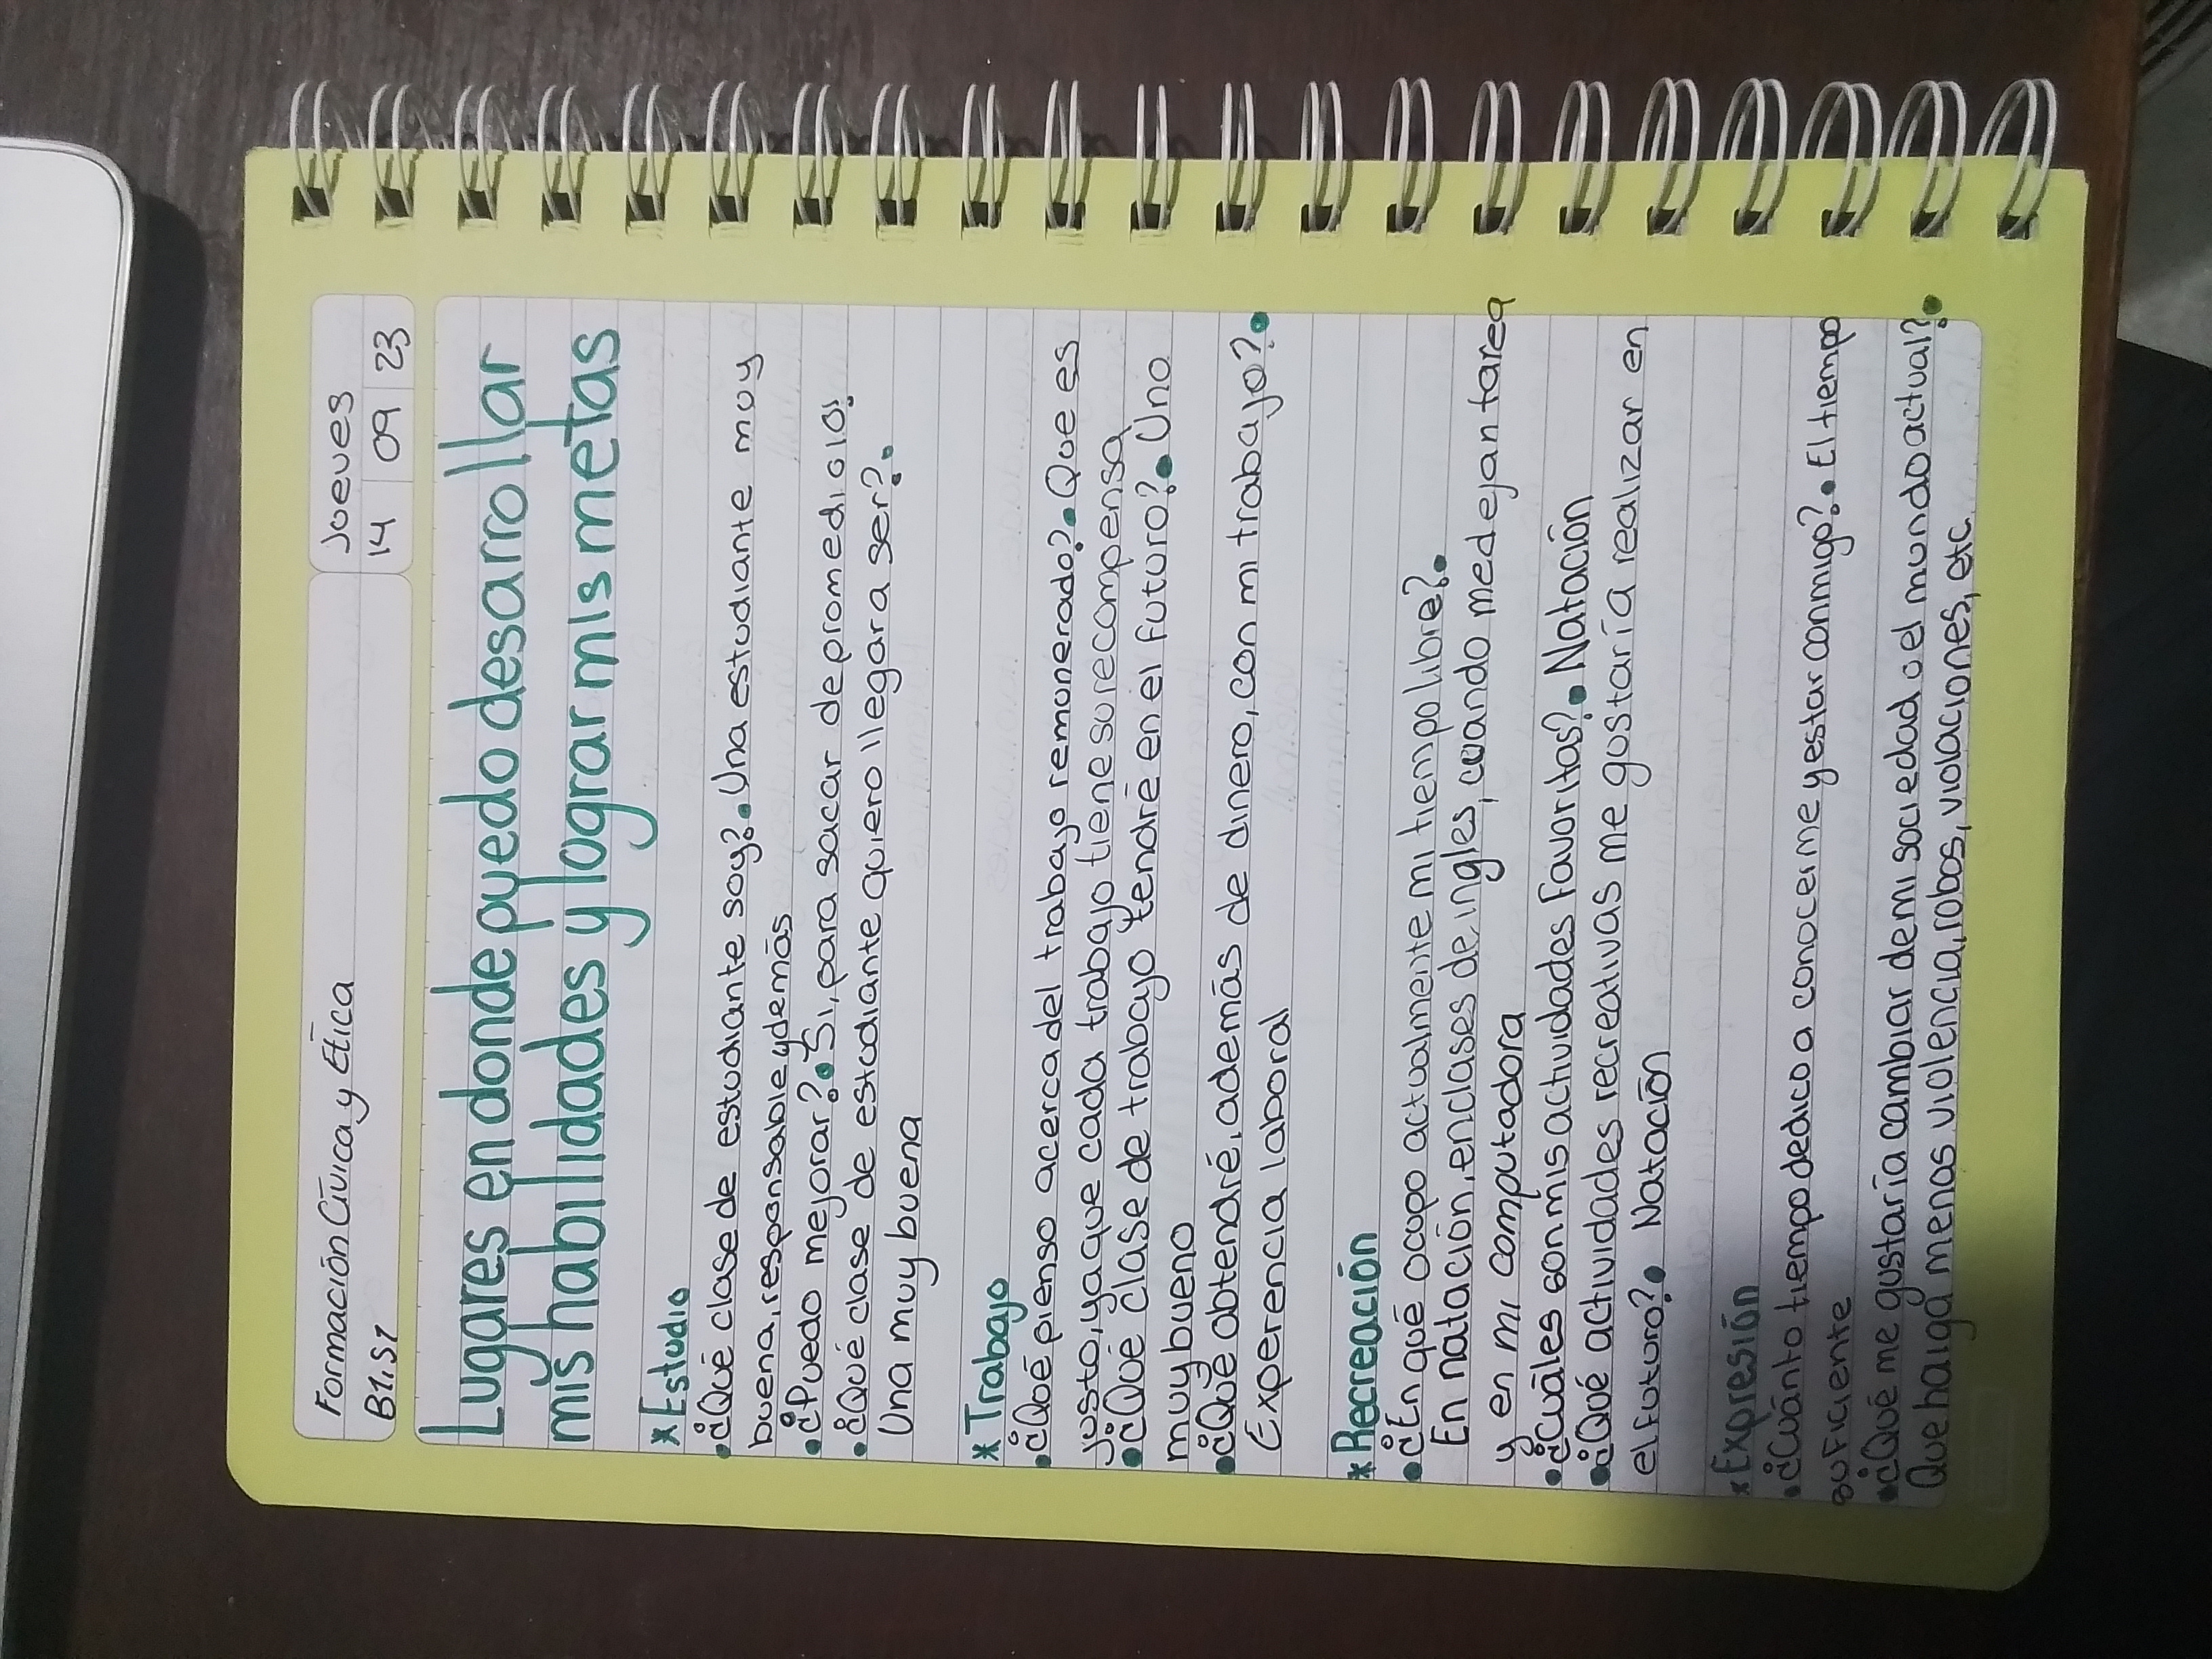 Formación Cívica y Ética
Jueves
B1, S2
14 09 23
Lugares en donde puedo desarrollar
mis habilidades y lograr mis metas
* Estudio
• ¿Qué clase de estudiante soy? • Una estudiante muy
buena, responsable y demás
• ¿Puedo mejorar? • Sí, para sacar de promedio 10!
• ¿Qué clase de estudiante quiero llegar a ser? •
Una muy buena
* Trabajo
• ¿Qué pienso acerca del trabajo remunerado? • Que es
justo, ya que cada trabajo tiene su recompensa
• ¿Qué clase de trabajo tendré en el futuro? • Uno
muy bueno
• ¿Qué obtendré, además de dinero, con mi trabajo? •
Experencia laboral
* Recreación
• ¿En qué ocupo actualmente mi tiempo libre? •
En natación, en clases de ingles, cuando me dejan tarea
y en mi computadora
• ¿Cuáles son mis actividades favoritas? • Natación
• ¿Qué actividades recreativas me gustaría realizar en
el futuro? • Natación
* Expresión
• ¿Cuánto tiempo dedico a conocerme y estar conmigo? • El tiempo
suficiente
• ¿Qué me gustaría cambiar de mi sociedad o el mundo actual? •
Que haiga menos violencia, robos, violaciones, etc.